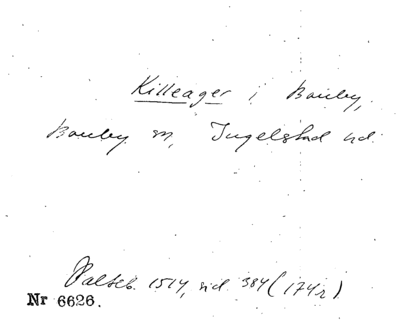 Killeager i Bouley,
Bouley sn, Ingelstad hd.
Palteb. 1514, sid 384 (174r)
Nr 6626.